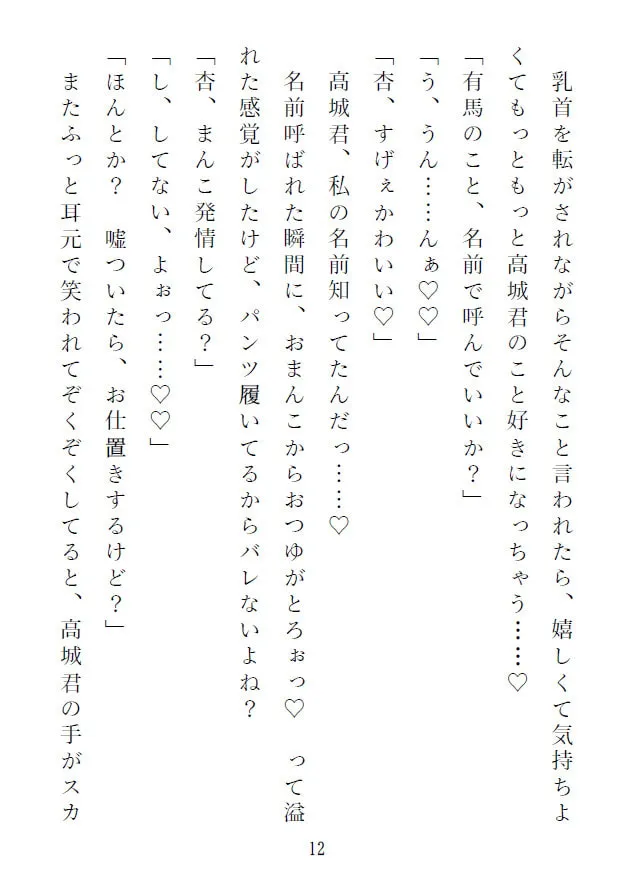 乳首を転がされながらそんなこと言われたら、嬉しくて気持ちよ
くてもっともっと高城君のこと好きになっちゃう……♡
「有馬のこと、名前で呼んでいいか?」
「う、うん……んぁ♡♡」
「杏、すげぇかわいい♡」
高城君、私の名前知ってたんだっ……♡
名前呼ばれた瞬間に、おまんこからおつゆがとろぉっ♡　って溢
れた感覚がしたけど、パンツ履いてるからバレないよね?
「杏、まんこ発情してる?」
「し、してない、よぉっ……♡♡」
「ほんとか?　嘘ついたら、お仕置きするけど?」
またふっと耳元で笑われてぞくぞくしてると、高城君の手がスカ
12